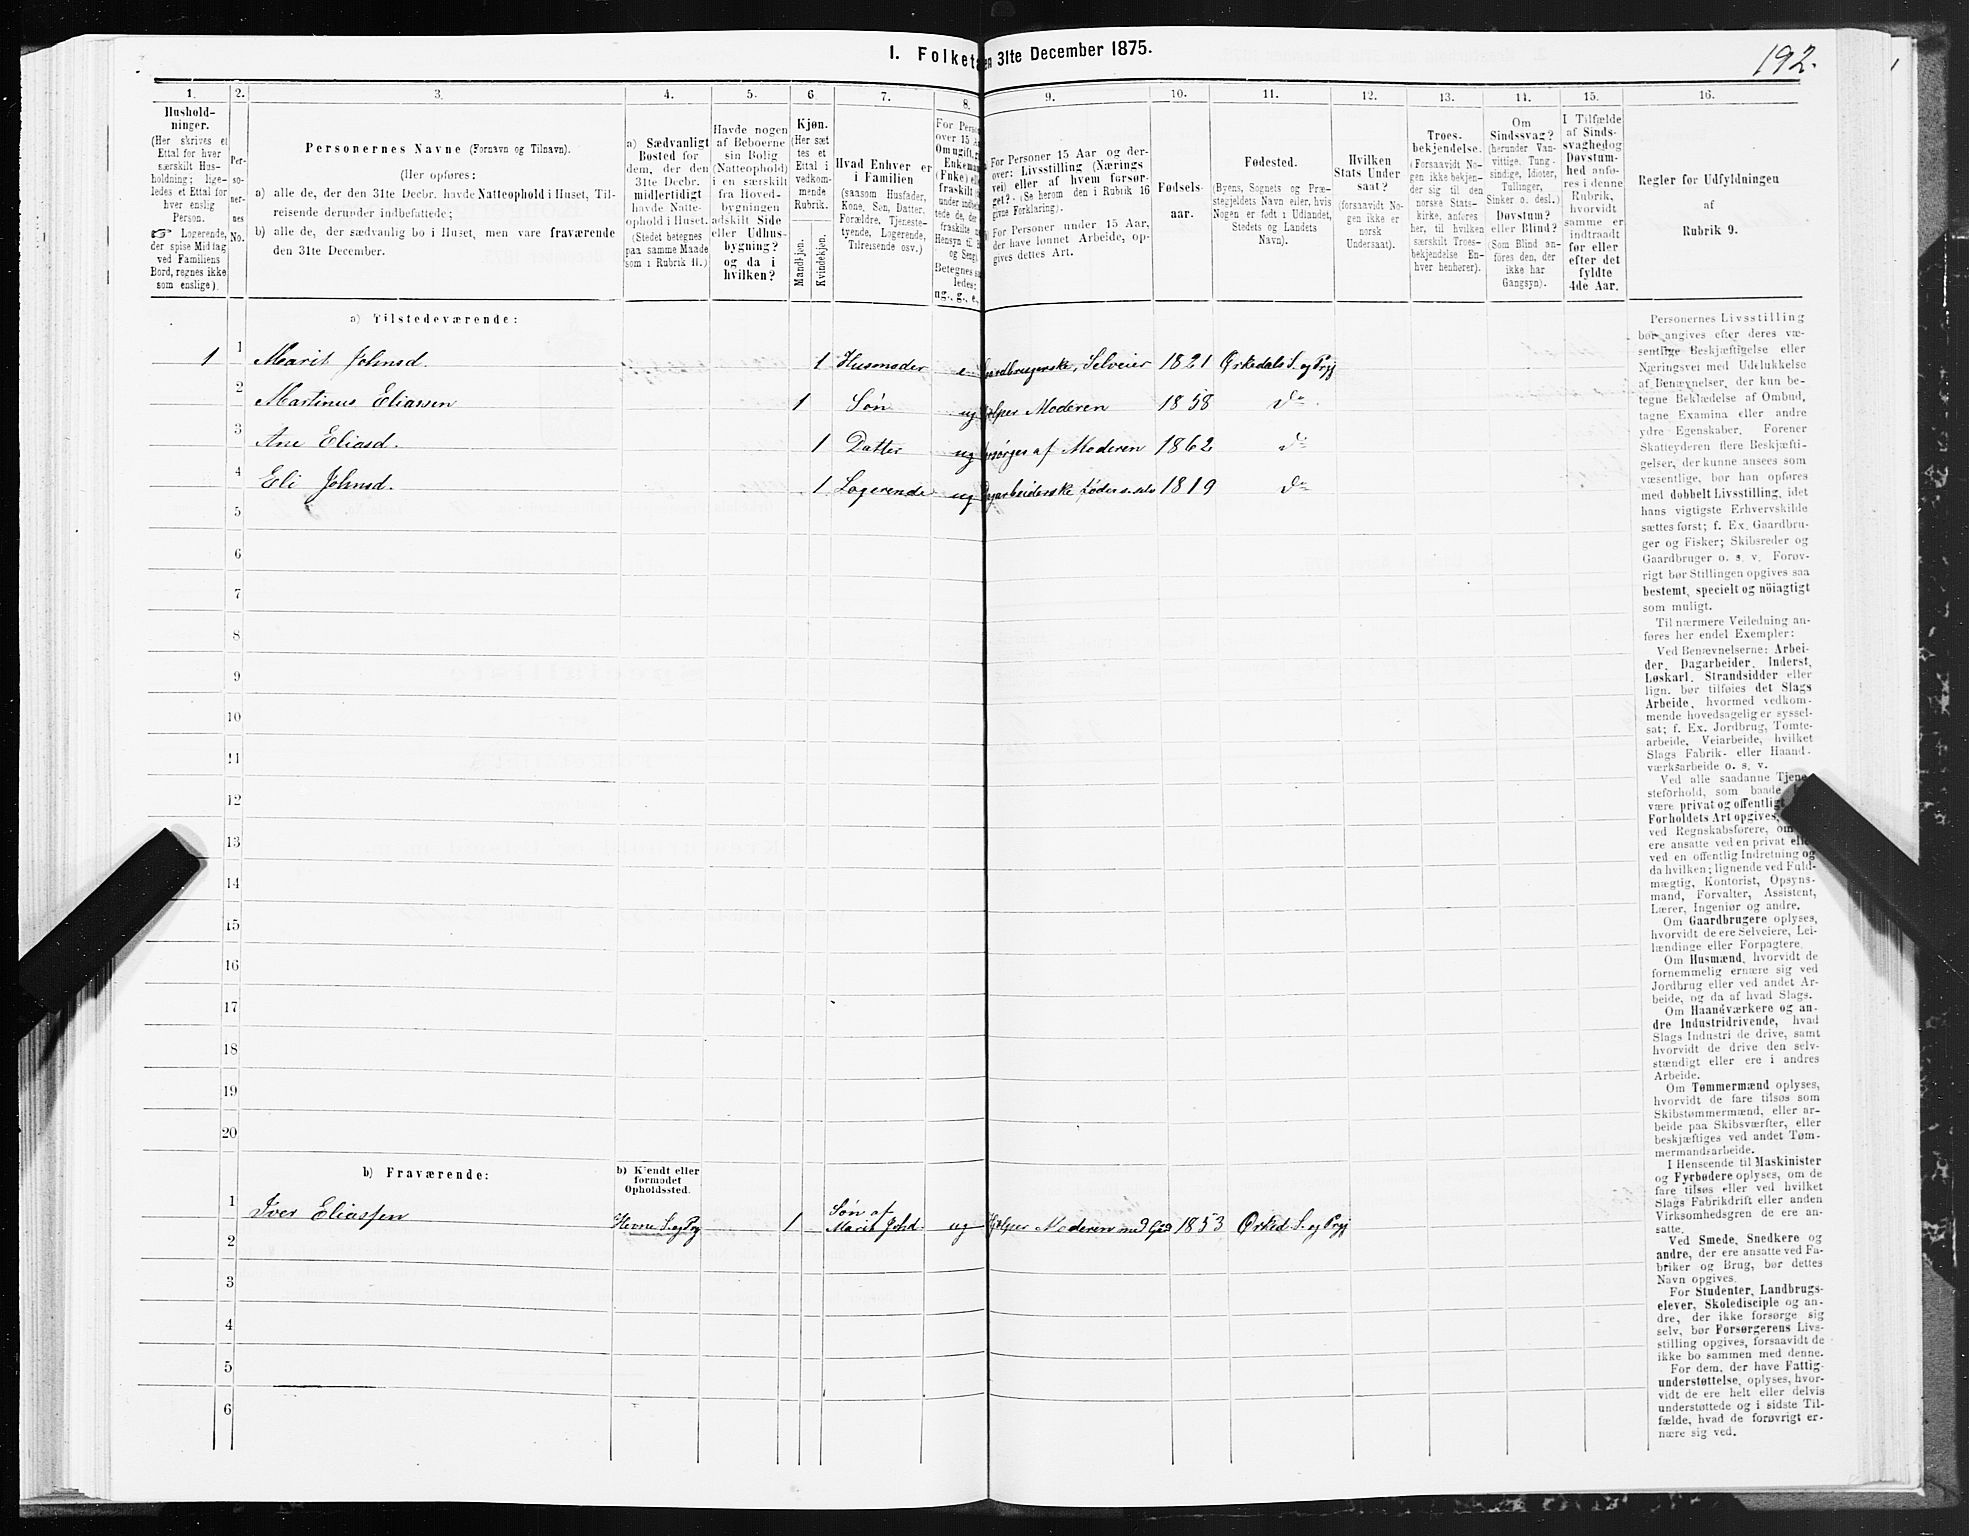 I. Folket
en 31te December 1875.
192.
1.
2.
3.
4.
5.
6
7.
8.
9.
10.
11.
12.
13.
14.
15.
16.
Hushold-
ninger.
(Her skrives et
Ettal for hver
særskilt Hus-
holdning; lige-
ledes et Ettal for
hver enslig
Person.
☞ Logerende,
der spise Middag
ved Familiens
Bord, regnes ikke
som enslige).
Per-
so-
ner-
nes
No.
Personernes Navne (Fornavn og Tilnavn).
(Her opføres:
a) alle de, der den 31te Decbr. havde Natteophold i Huset, Til-
reisende derunder indbefattede;
b) alle de, der sædvanlig bo i Huset, men vare fraværende
den 31te December.
a) Sædvanligt
Bosted for
dem, der den
31te Decbr.
midlertidigt
havde Natte-
ophold i Huset.
(Stedet betegnes
paa samme Maade
som i Rubrik 11.)
Havde nogen
af Beboerne
sin Bolig
(Natteophold)
i en særskilt
fra Hoved-
bygningen
adskilt Side
eller Udhus-
bygning?
og da i
hvilken?
Kjøn.
(Her sæt
tes et
Ettal i
vedkom-
mende
Rubrik.
Mandkjøn.
Kvindekjøn.
Hvad Enhver er
i Familien
(saasom Husfader,
Kone, Søn, Datter,
Forældre, Tjeneste-
tyende, Logerende,
Tilreisende osv.)
For Perso
over 15 A
Om ugift, g
Enkema
(Enke) e
fraskilt
under indb
tede de, de
fraskilte
Hensyn til
og Seng)
Betegnes s
ledes:
ug., g., e.,
For Personer 15 Aar og der-
over: Livsstilling (Nærings
vei) eller af hvem forsør-
get? - (Se herom den i Rubrik 16
givne Forklaring).
For Personer under 15 Aar,
der have lønnet Arbeide, op-
gives dettes Art.
Fødsels-
aar.
Fødested.
(Byens, Sognets og Præ-
stegjeldets Navn eller, hvis
Nogen er født i Udlandet,
Stedets og Landets
Navn).
Hvilken
Stats Under
saat?
(forsaavidt No-
gen ikke er
norsk
Undersaat).
Troes-
bekjendelse.
(Forsaavidt No-
gen ikke bekjen-
der sig til den
norske Stats-
kirke, anføres
her, til hvilken
særskilt Troes-
bekjendelse En-
hver henhører).
Om
Sindssvag?
(herunder Van-
vittige, Tung-
sindige, Idioter,
Tullinger,
Sinker o. desl.)
Døvstum?
eller Blind?
(Som Blind an-
føres den, der
ikke har
Gangsyn).
I Tilfælde
af Sinds-
svaghed og
Døvstum-
hed anfø-
res i denne
Rubrik,
hvorvidt
samme er
indtraadt
før eller
efter det
fyldte
4de Aar.
Regler for Udfyldningen
af
Rubrik 9.
a) Tilstedeværende:
1 1 Marit Johnsd. 1 Husmoder e Gaardbrugerske, Selveier 1821 Ørkedals S. og Prgj
2 Martinus Eliassen 1 Søn ug hjelper Moderen 1858 do
3 Ane Eliasd. 1 Datter ug forsørges af Moderen 1862 do
4 Eli Johnsd. 1 Logerende ug Dagarbeiderske føder s. selv 1819 do
5
6
7
8
9
10
11
12
13
14
15
16
17
18
19
20
b) Fraværende:
b) Kjendt eller
formodet
Opholdssted.
1 Iver Eliassen Hevne S. og Prg 1 Søn af Marit Johd. ug Hjelper Moderen med Grd 1853 Ørked. S. og Prgj
2
3
4
5
6
Personernes Livsstilling
bør angives efter deres væ-
sentlige Beskjæftigelse eller
Næringsvei med Udelukkelse
af Benævnelser, der kun be-
tegne Beklædelse af Ombud,
tagne Examina eller andre
ydre Egenskaber. Forener
Skatteyderen flere Beskjæfti-
gelser, der kunne ansees som
væsentlige, bør han opføres
med dobbelt Livsstilling, idet
hans vigtigste Erhvervskilde
sættes først; f. Ex. Gaardbru-
ger og Fisker; Skibsreder og
Gaardbruger o. s. v. Forøv-
rigt bør Stillingen opgives saa
bestemt, specielt og nöiagtigt
som muligt.
Til nærmere Veiledning an-
føres her endel Exempler:
Ved Benævnelserne: Arbei-
der, Dagarbeider, Inderst,
Løskarl, Strandsidder eller
lign. bør tilføies det Slags
Arbeide, hvormed vedkom-
mende hovedsagelig er syssel-
sat; f. Ex. Jordbrug, Tomte-
arbeide, Veiarbeide, hvilket
Slags Fabrik- eller Haand-
værksarbeide o. s. v.
Ved alle saadanne Tjene
steforhold, som baade
være privat og offentligt
Forholdets Art opgives,
ved Regnskabsførere, om
ere ansatte ved en privat elle
ved en offentlig Indretning og
da hvilken; lignende ved Fuld-
mægtig, Kontorist, Opsyns-
mand, Forvalter, Assistent,
Lærer, Ingeniør og andre.
Om Gaardbrugere oplyses,
hvorvidt de ere Selveiere, Lei-
lændinge eller Forpagtere.
Om Husmænd, hvorvidt de
fornemmelig ernære sig ved
Jordbrug eller ved andet Ar-
beide, og da af hvad Slags.
Om Haandværkere og an-
dre Industridrivende, hvad
Slags Industri de drive, samt
hvorvidt de drive den selv-
stændigt eller ere i andres
Arbeide.
Om Tømmermænd oplyses,
hvorvidt de fare tilsøs som
Skibstømmermænd, eller ar-
beide paa Skibsværfter, eller
beskjæftiges ved andet Tøm-
mermandsarbeide.
I Henseende til Maskinister
og Fyrbødere oplyses, om de
fare tilsøs eller ved hvilket
Slags Fabrikdrift eller anden
Virksomhedsgren de ere an-
satte.
Ved Smede, Snedkere og
andre, der ere ansatte ved Fa-
briker og Brug, bør dettes
Navn opgives.
For Studenter, Landbrugs-
elever, Skoledisciple og an-
dre, der ikke forsørge sig
selv, bør Forsørgerens Livs-
stilling opgives, forsaavidt de
ikke bo sammen med denne.
For dem, der have Fattig-
understøttelse, oplyses, hvor-
vidt de ere helt eller delvis
understøttede og i sidste Til-
fælde, hvad de forøvrigt er-
nære sig ved.